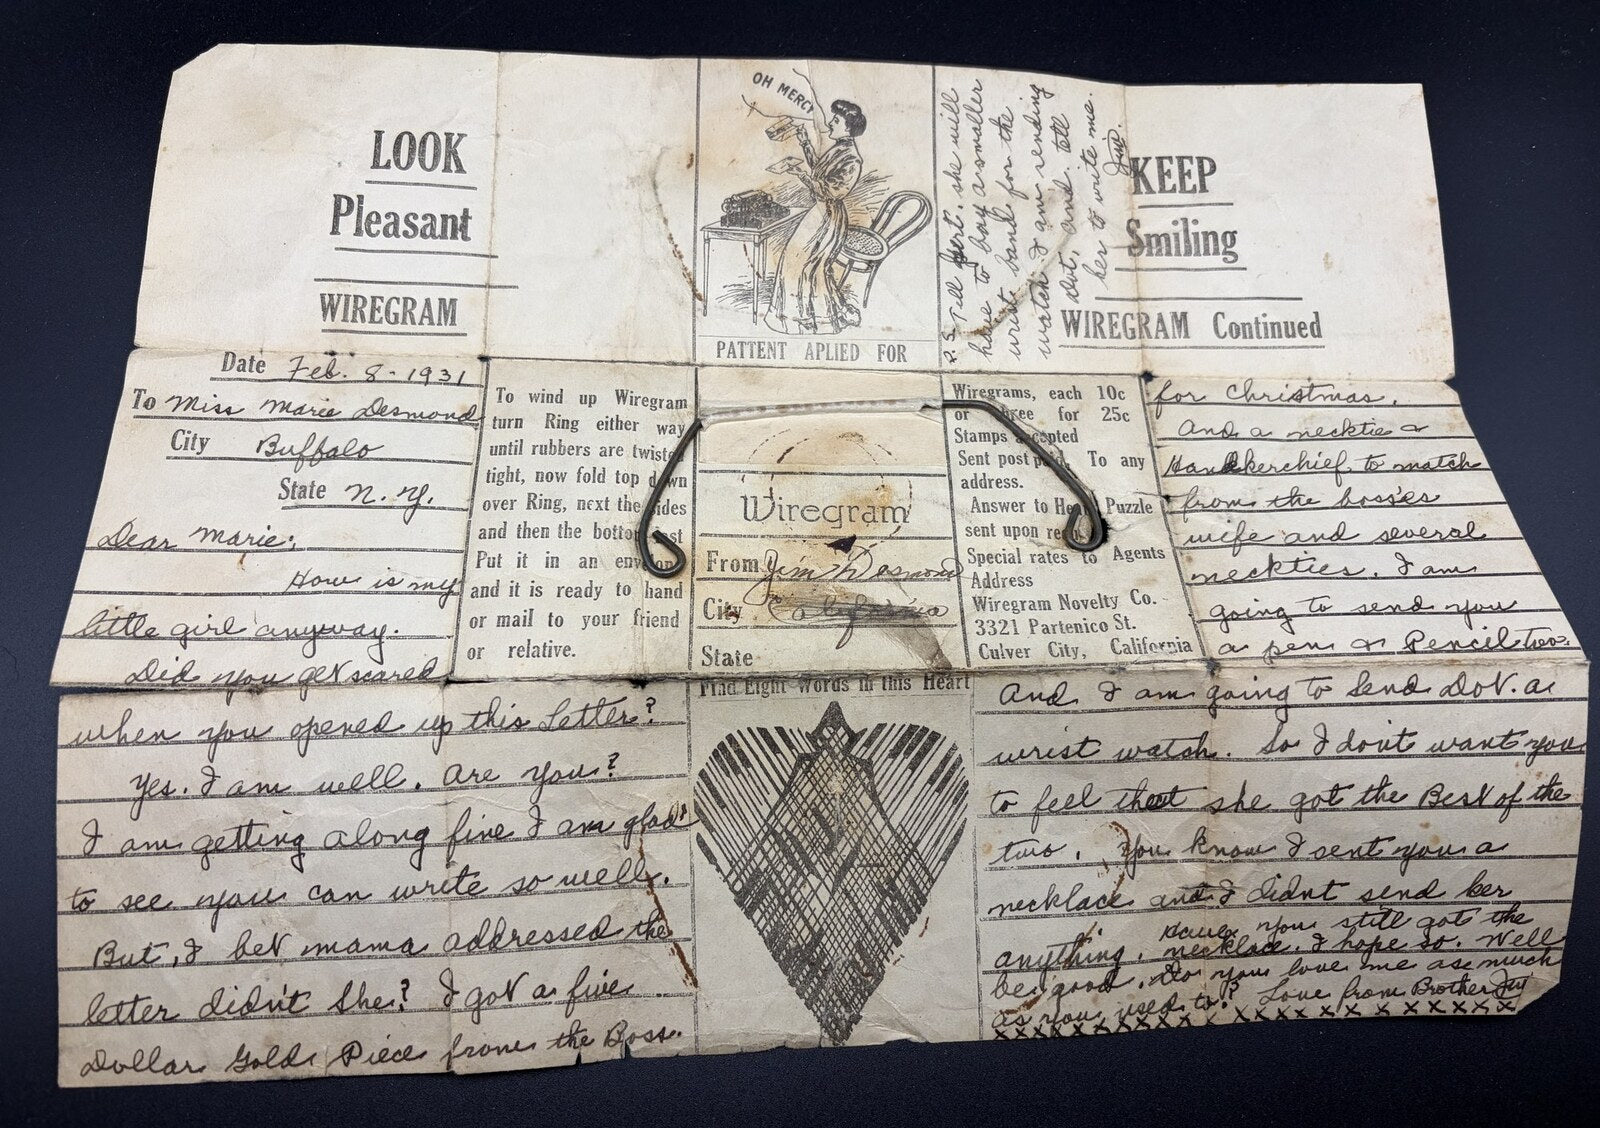 LOOK
Pleasant
WIREGRAM
OH MERCY
PATTENT APLIED FOR
P.S. Tell Gert. she will
have to buy a smaller
wrist band for the
watch I am sending
Dot, and tell
her to write me.
Jim.
KEEP
Smiling
WIREGRAM Continued
Date Feb. 8 - 1931
To Miss Marie Desmond
City Buffalo
State N. Y.
Dear Marie;
How is my
little girl anyway.
Did you get scared
when you opened up this Letter?
Yes. I am well. Are you?
I am getting along fine I am glad
to see you can write so well.
But, I bet mama addressed the
letter didn't she? I got a five
Dollar Gold Piece from the Boss.
To wind up Wiregram
turn Ring either way
until rubbers are twisted
tight, now fold top down
over Ring, next the sides
and then the bottom
Put it in an
and it is ready to hand
or mail to your friend
or relative.
Wiregram
From Jim Desmond
City California
State
Find Eight Words in this Heart
Wiregrams, each 10c
or three for 25c
Stamps accepted
Sent post paid. To any
address.
Answer to Heart Puzzle
sent upon
Special rates to Agents
Address
Wiregram Novelty Co.
3321 Partenico St.
Culver City, California
for Christmas.
And a necktie &
Handkerchief to match
from the bosses
wife and several
neckties. I am
going to send you
a pen & Pencil two.
And I am going to send Dot. a
wrist watch. So I dont want you
to feel that she got the Best of the
two. You know I sent you a
necklace and I didnt send her
anything. Have you still got the
necklace. I hope so. Well
be good. Do you love me as much
as you used to? Love from Brother Jim
xxxxxxxxxxxxxxxxxxx